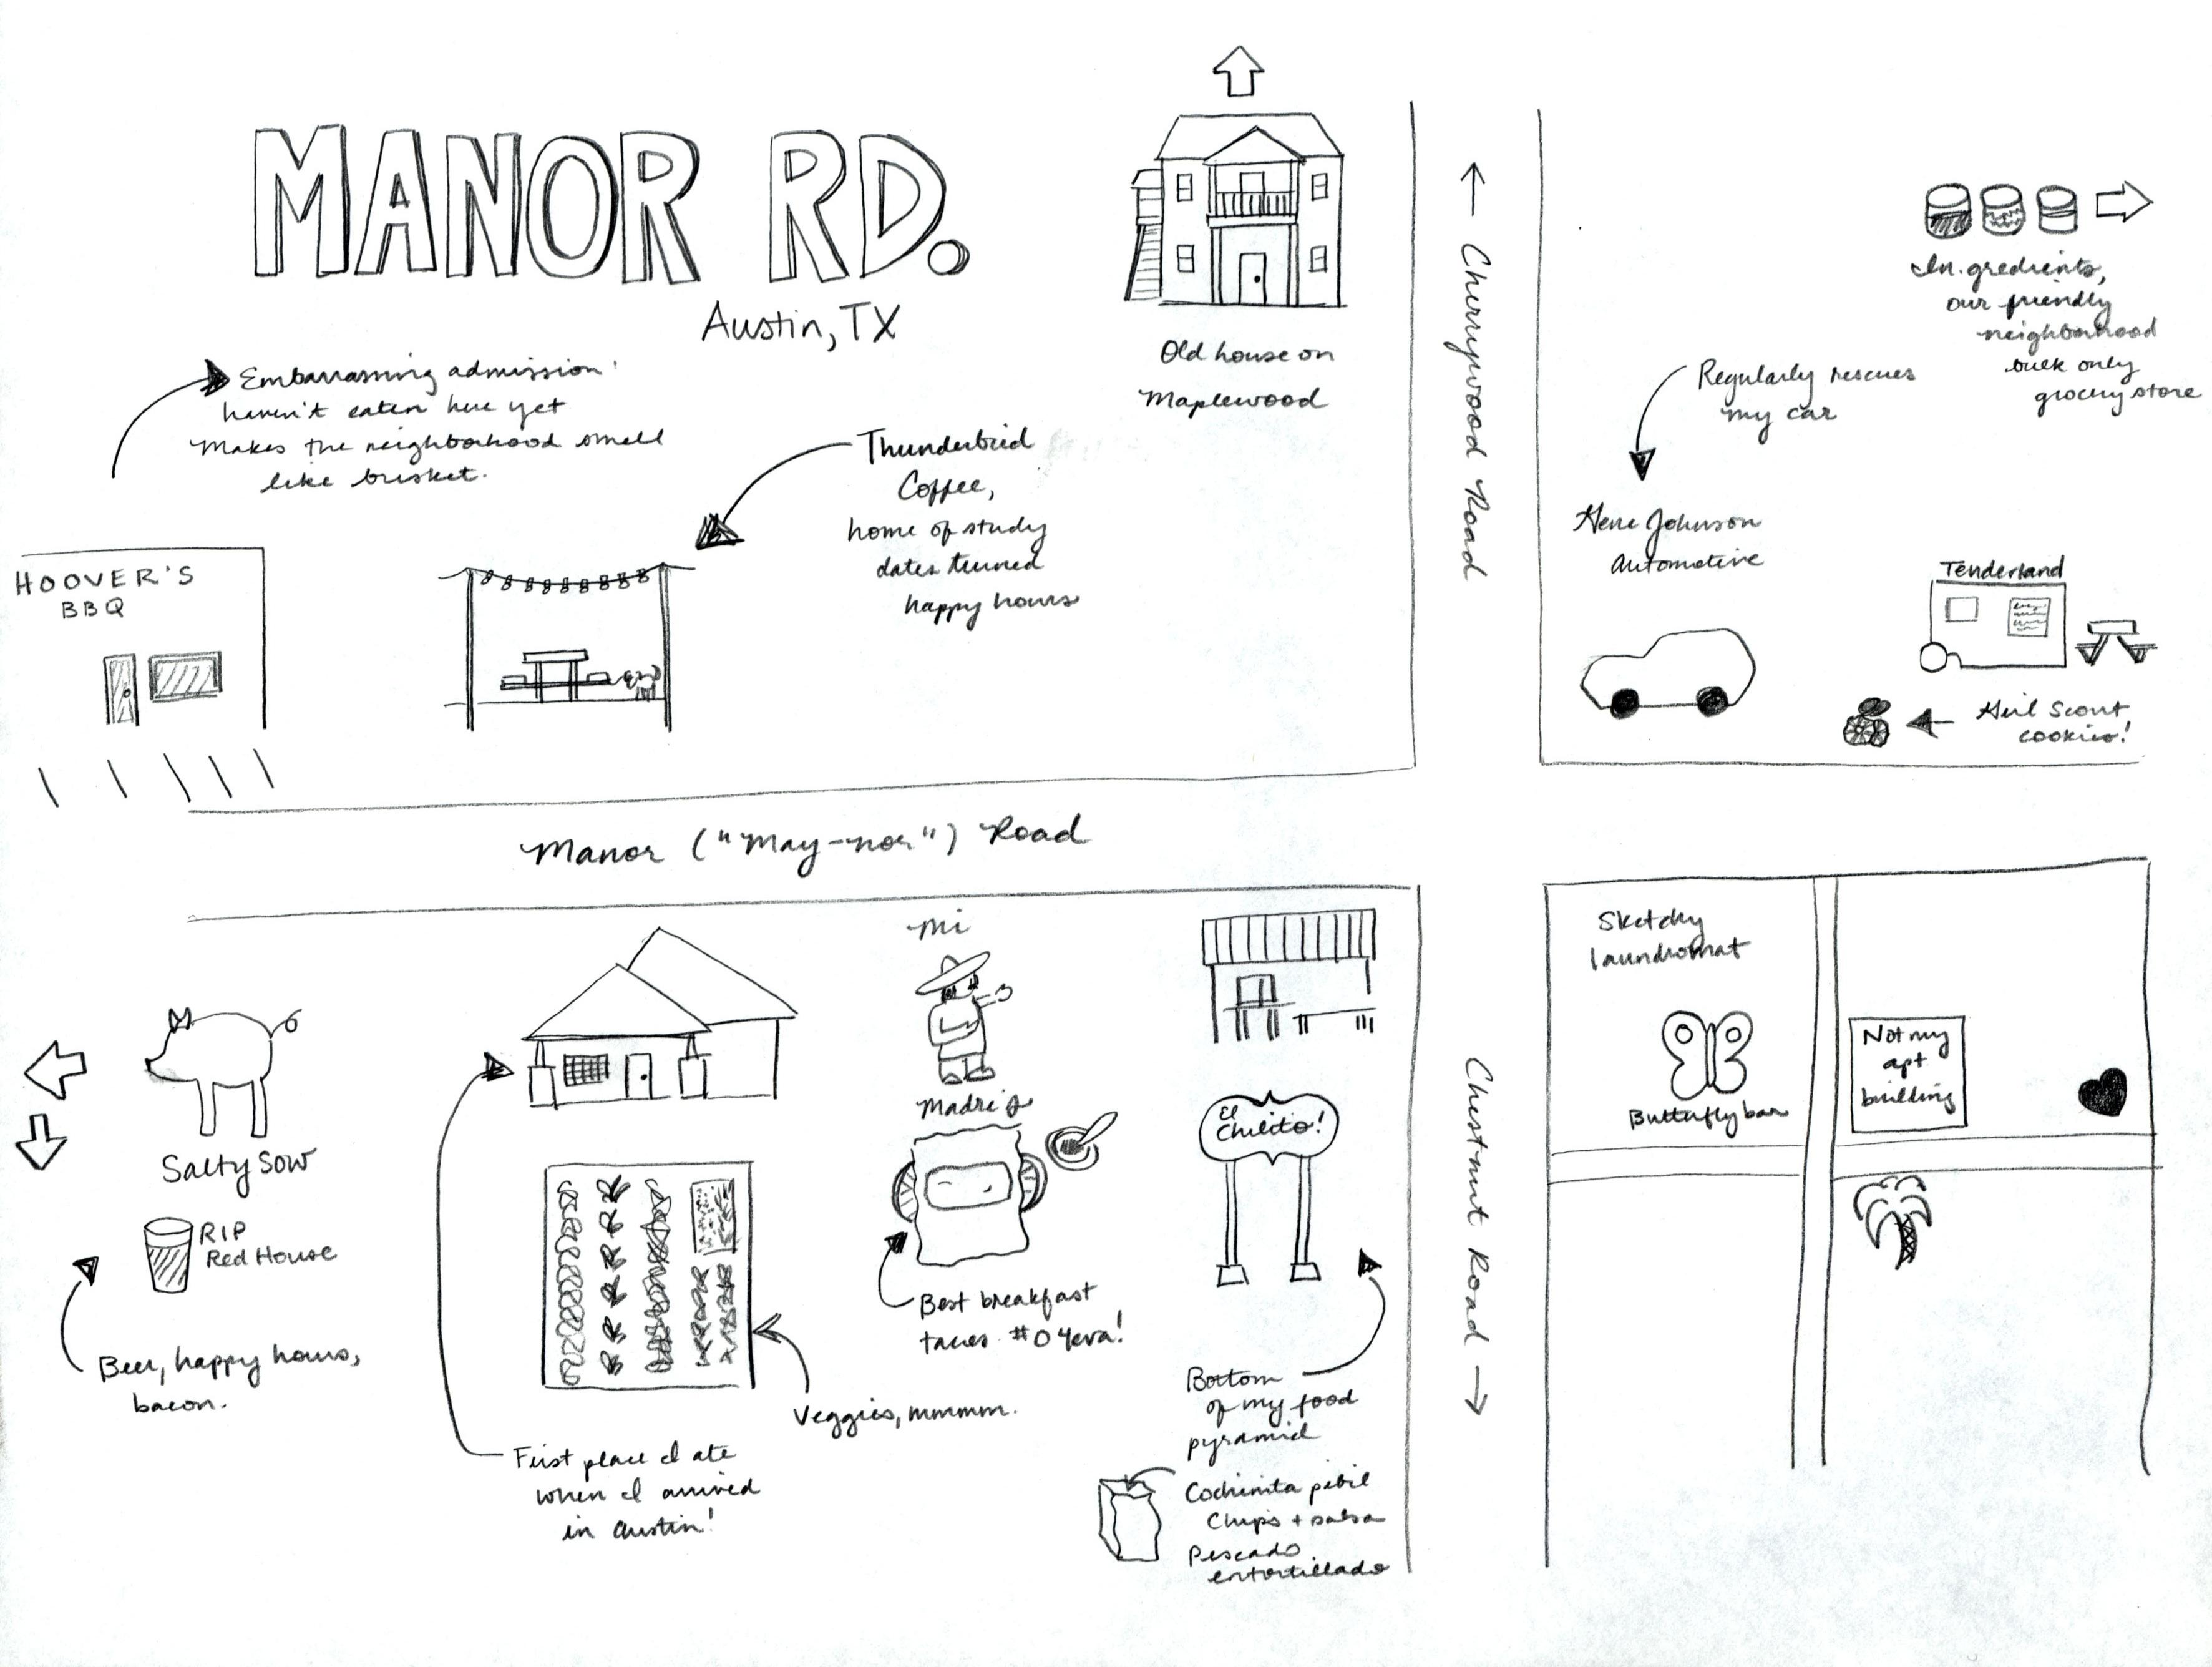 MANOR RD.
Austin, TX
Embarrassing admission:
haven't eaten here yet
Makes the neighborhood smell
like brisket.
HOOVER'S
BBQ
Thunderbird
Coffee,
home of study
dates turned
happy hours
Old house on
Maplewood
← Cherrywood Road
In.gredients,
our friendly
neighborhood
bulk only
grocery store
Regularly rescues
my car
Gene Johnson
Automotive
Tenderland
Girl Scout
cookies!
Manor ("May-nor") Road
Salty Sow
RIP
Red House
Beer, happy hours,
bacon.
First place I ate
when I arrived
in Austin!
Veggies, mmmm.
Mi
Madre's
Best breakfast
tacos #0 4eva!
El
Chilito!
Bottom
of my food
pyramid
Cochinita pibil
Chips + salsa
Pescado
entortillado
Chestnut Road →
Sketchy
laundromat
Butterfly bar
Not my
apt
building